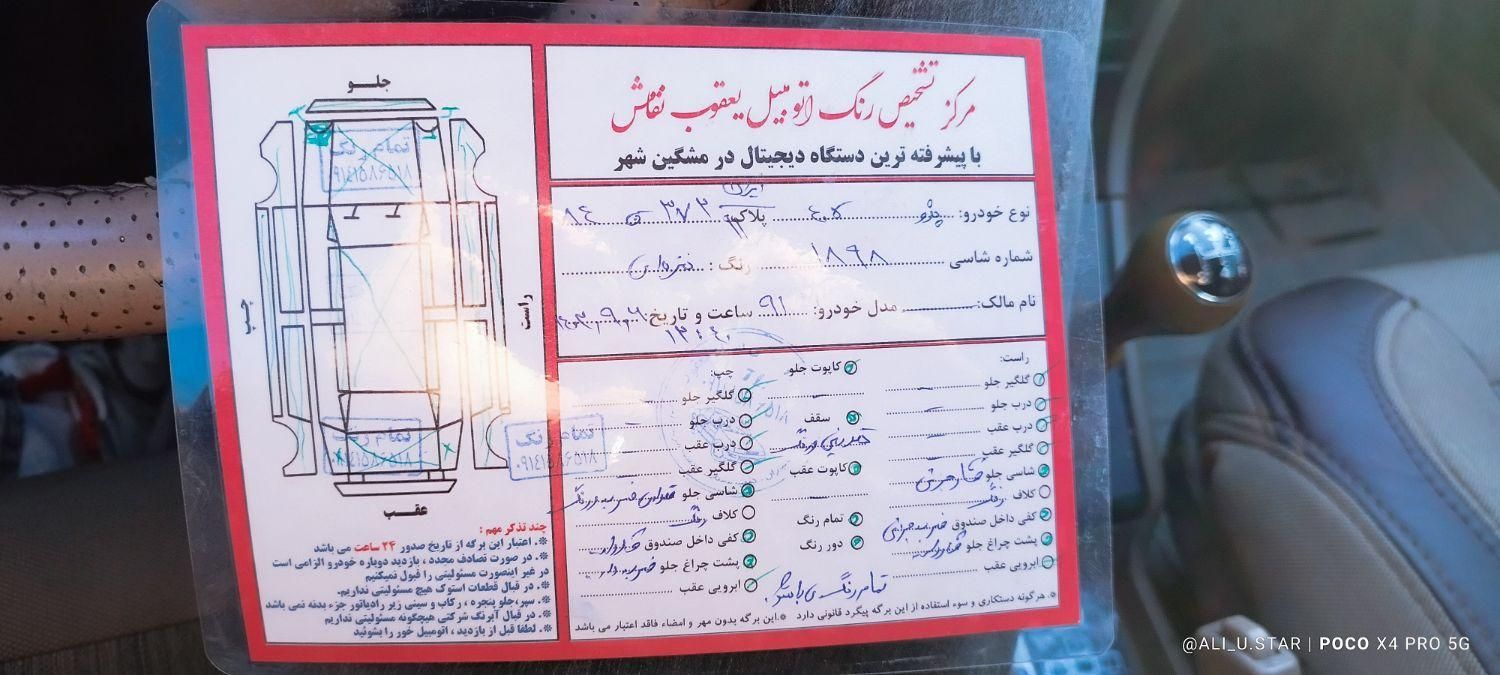 مرکز تشخیص رنگ اتومبیل یعقوب نقاش
با پیشرفته ترین دستگاه دیجیتال در مشگین شهر
نوع خودرو: پژو ۴۰۵ پلاک: ایران ۳۷۲ ۸۴
شماره شاسی ۱۸۹۸ رنگ: نقره‌ای
نام مالک: مدل خودرو: ۹۱ ساعت و تاریخ:
۱۳:۴۰
راست:
گلگیر جلو
درب جلو
درب عقب
گلگیر عقب
شاسی جلو
کلاف
کفی داخل صندوق
پشت چراغ جلو
ابرویی عقب
کاپوت جلو
سقف
کاپوت عقب
تمام رنگ
دور رنگ
چپ:
گلگیر جلو
درب جلو
درب عقب
گلگیر عقب
شاسی جلو
کلاف رنگ
کفی داخل صندوق
پشت چراغ جلو
ابرویی عقب
تمام رنگ می باشد.
* هرگونه دستکاری و سوء استفاده از این برگه پیگرد قانونی دارد * این برگه بدون مهر و امضاء فاقد اعتبار می باشد
جلو
چپ
راست
عقب
تمام رنگ
۰۹۱۴۱۵۸۶۵۱۸
تمام رنگ
۰۹۱۴۱۵۸۶۵۱۸
تمام رنگ
۰۹۱۴۱۵۸۶۵۱۸
چند تذکر مهم :
* . اعتبار این برگه از تاریخ صدور ۲۴ ساعت می باشد
* . در صورت تصادف مجدد ، بازدید دوباره خودرو الزامی است
در غیر اینصورت مسئولیتی را قبول نمیکنیم
* . در قبال قطعات استوک هیچ مسئولیتی نداریم.
* . سپر،جلو پنجره ، رکاب و سینی زیر رادیاتور جزء بدنه نمی باشد
* . در قبال آبرنگ شرکتی هیچگونه مسئولیتی نداریم
* . لطفا قبل از بازدید ، اتومبیل خور را بشوئید
@ALI_U.STAR | POCO X4 PRO 5G